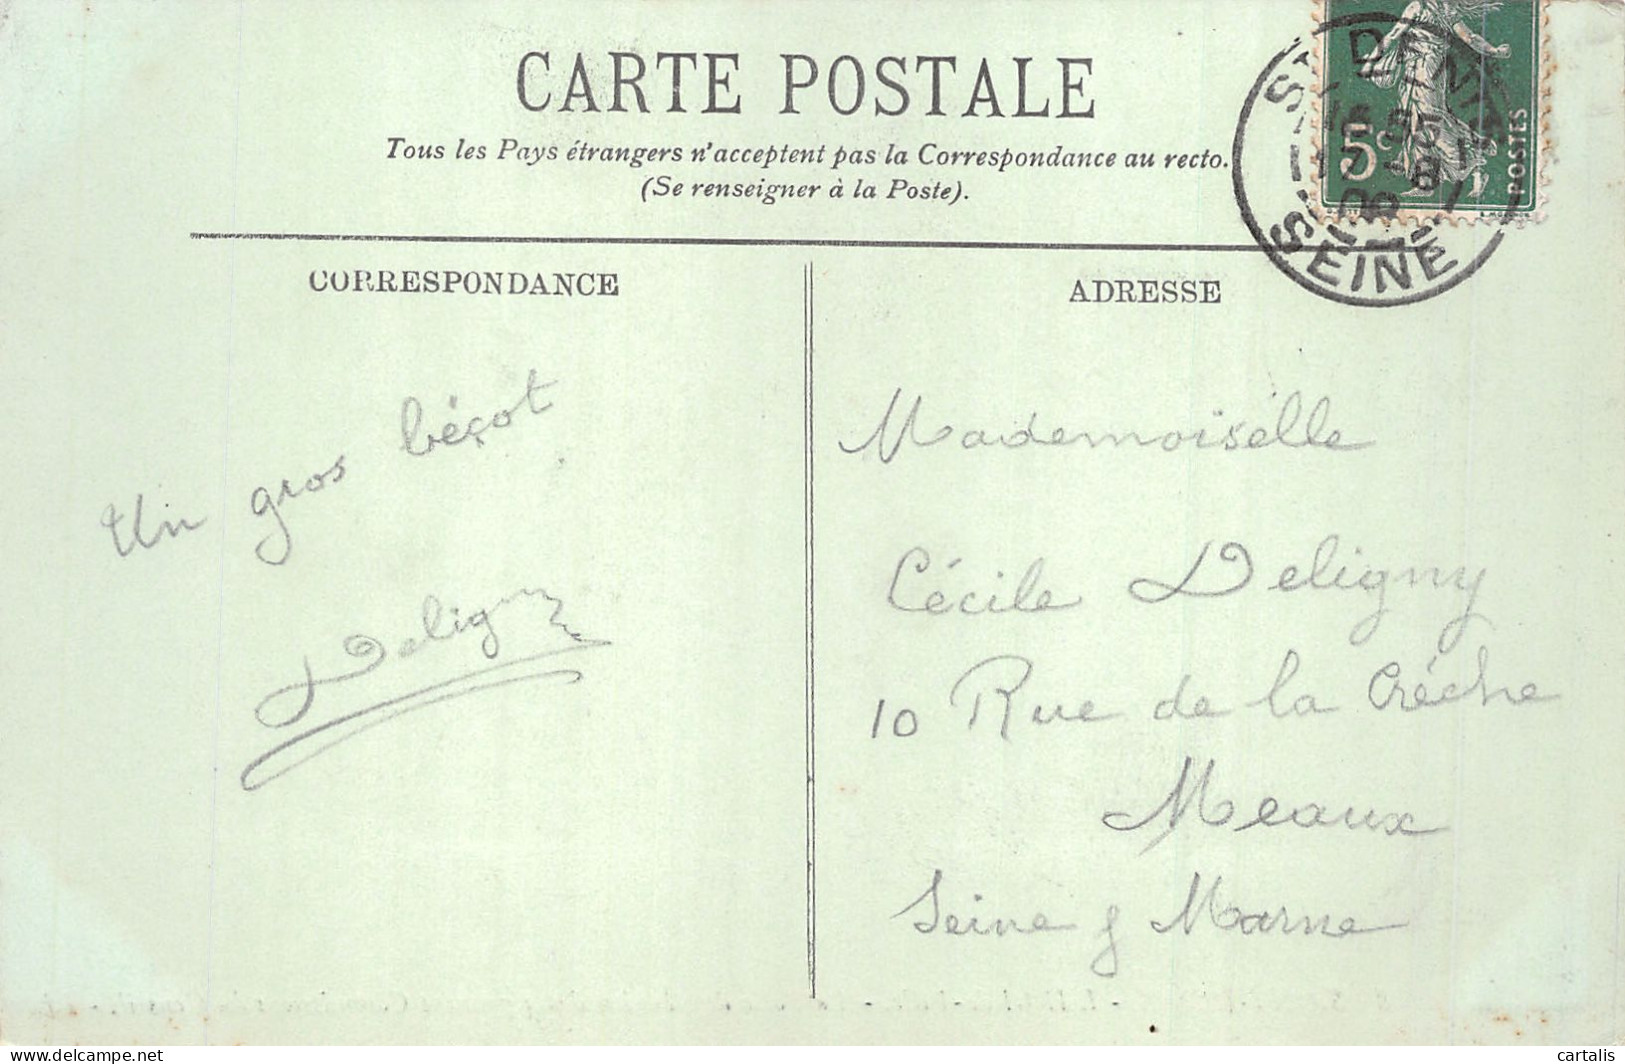 CARTE POSTALE
Tous les Pays étrangers n'acceptent pas la Correspondance au recto.
(Se renseigner à la Poste).
5c
POSTES
ST DENIS
SEINE
CORRESPONDANCE
Un gros béçot
Deligny
ADRESSE
Mademoiselle
Cécile Deligny
10 Rue de la Créche
Meaux
Seine & Marne
www.delcampe.net
cartalis